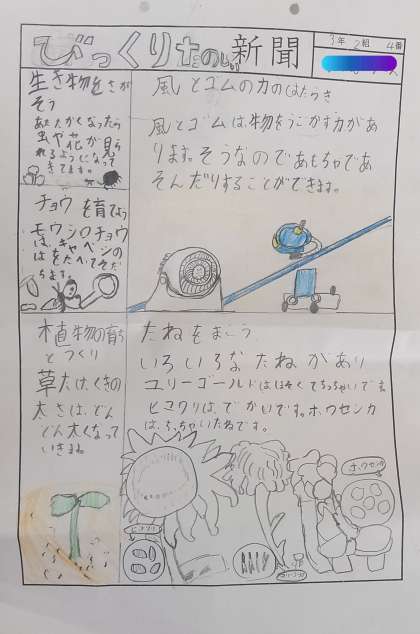 びっくりたのしい新聞
3年 2組 4番
生き物をさが
そう
あたたかくなったら
虫や花が見ら
れるようになって
きてます。
チョウを育てよう
モンシロチョウ
は、キャベツの
はをたべてそだ
ちます。
植物の育ち
とつくり
草たけ、くきの
太さは、どん
どん太くなって
いきます。
風とゴムの力のはたらき
風とゴムは、物をうごかす力があ
ります。そうなのであもちゃであ
そんだりすることができます。
たねをまこう
いろいろなたねがあり
ユリーゴールドはほそくてちっちゃいです。
ヒマワリは、でかいです。ホウセンカ
は、ちっちゃいたねです。
ヒマワリ
ホウセンカ